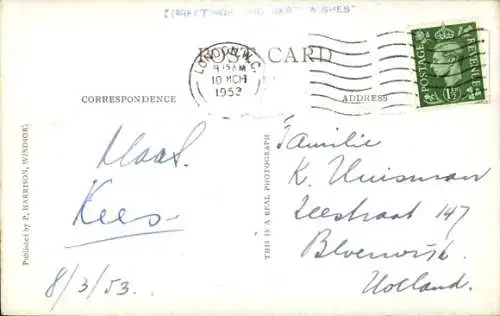 "GREETINGS AND BEST WISHES"
POST CARD
LONDON. W.C.
9.15 AM
10 MCH
1953
POSTAGE
REVENUE
1½D
CORRESPONDENCE
ADDRESS
Maas.
Kees
8/3/53.
Published by P. HARRISON, WINDSOR
THIS IS A REAL PHOTOGRAPH
Familie
K. Huisman
Zeestraat 147
Beverwijk
Holland.